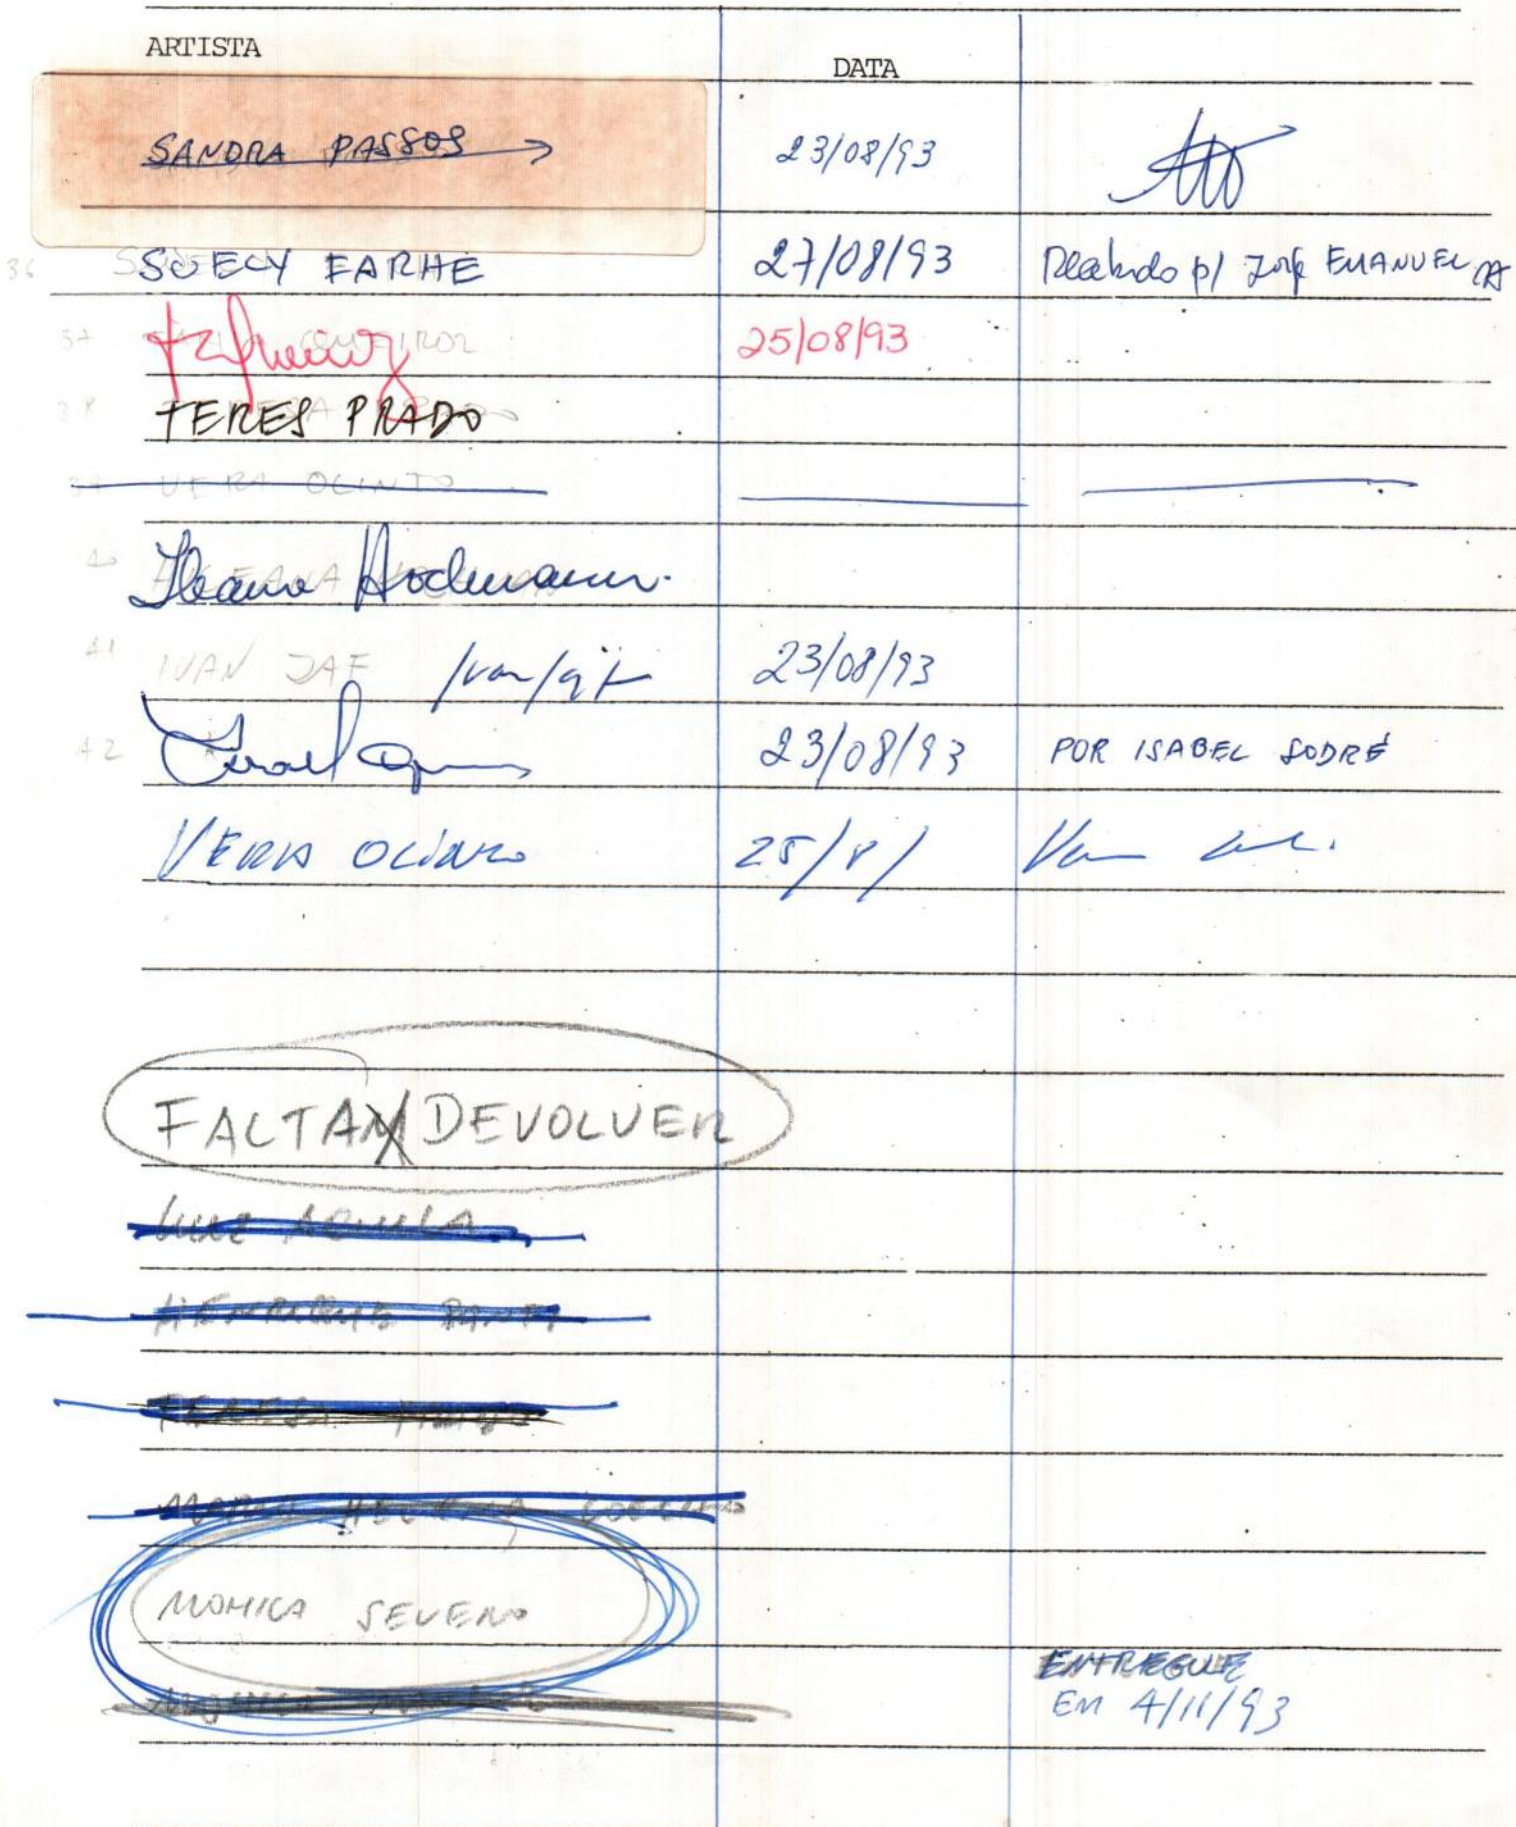 ARTISTA DATA
SANDRA PASSOS 23/08/93
36 SUELY FARHE 27/08/93 Recebido p/ Jorge EMANUEL
37 QUEIROZ 25/08/93
38 TERES PRADO
39 VERA OLINTO
40 Ileana Hochmann
41 IVAN JAF Ivan Jaf 23/08/93
42 23/08/93 POR ISABEL SODRÉ
VERA OLINTO 25/8/
FALTAM DEVOLVER
LUIZ AQUILA
HENRIQUE
TERESA PRADO
MARIA
MONICA SEVERO
ENTREGUE
EM 4/11/93